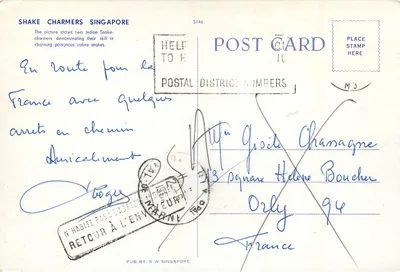 SHAKE CHARMERS SINGAPORE
The picture shows two indian Snake-
charmers demonstrating their skill in
charming poisonous cobra snakes.
5146
POST CARD
PLACE
STAMP
HERE
HELP
TO
POSTAL DISTRICT NUMBERS
En route pour la
France avec quelques
arrêts en chemin
Amicalement
Roger
Mme Gisèle Chassagne
3 square Hélène Boucher
Orly 94
France
N'HABITE PAS L'ADRESSE
RETOUR À L'ENV
VAL DE MARNE
PUB. BY: S. W. SINGAPORE